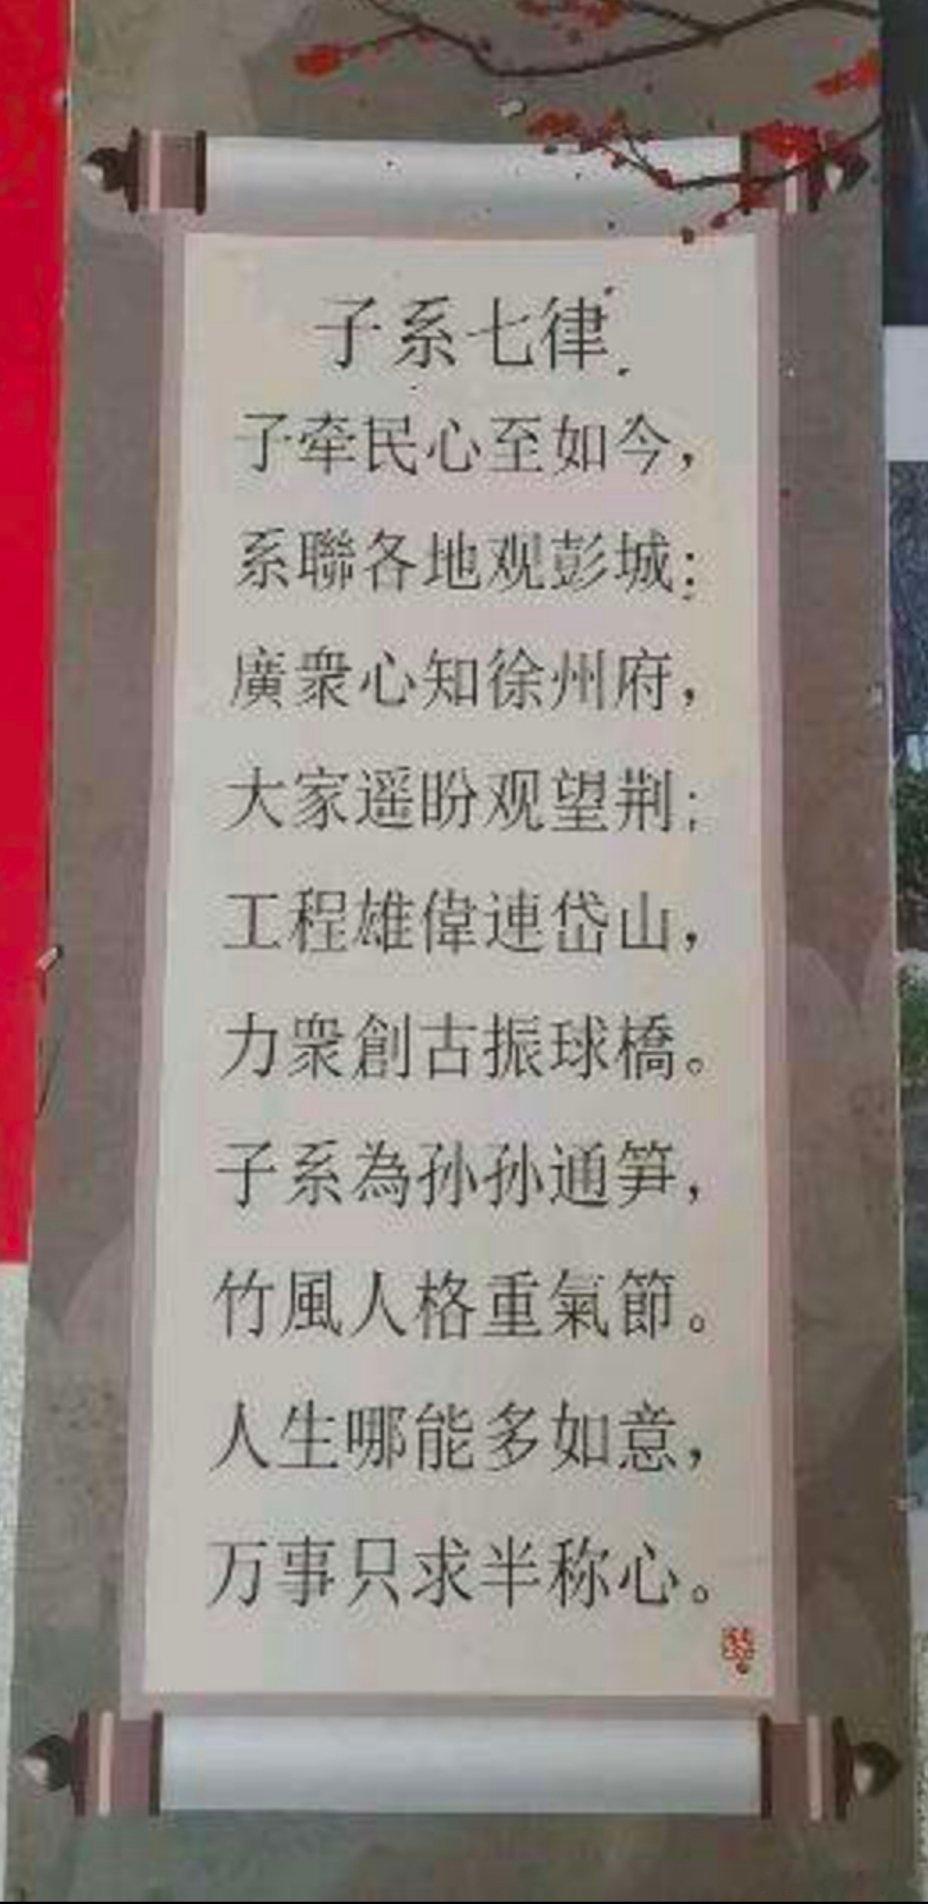 子系七律
子牵民心至如今，
系聯各地观彭城；
廣衆心知徐州府，
大家遥盼观望荆；
工程雄偉連岱山，
力衆創古振球橋。
子系為孙孙通笋，
竹風人格重氣節。
人生哪能多如意，
万事只求半称心。